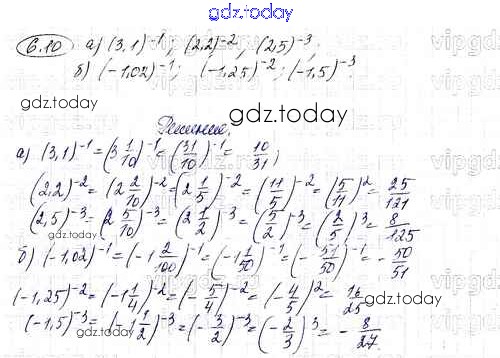 gdz.today
6.10 а) (3,1)⁻¹; (2,2)⁻²; (2,5)⁻³;
б) (-1,02)⁻¹; (-1,25)⁻²; (-1,5)⁻³.
gdz.today
gdz.today
Решение.
а) (3,1)⁻¹ = (3 1/10)⁻¹ = (31/10)⁻¹ = 10/31;
(2,2)⁻² = (2 2/10)⁻² = (2 1/5)⁻² = (11/5)⁻² = (5/11)² = 25/121
(2,5)⁻³ = (2 5/10)⁻³ = (2 1/2)⁻³ = (5/2)⁻³ = (2/5)³ = 8/125
gdz.today
б) (-1,02)⁻¹ = (-1 2/100)⁻¹ = (-1 1/50)⁻¹ = (-51/50)⁻¹ = -50/51
(-1,25)⁻² = (-1 1/4)⁻² = (-5/4)⁻² = (-4/5)² = 16/25
gdz.today
(-1,5)⁻³ = (-1 1/2)⁻³ = (-3/2)⁻³ = (-2/3)³ = -8/27.
gdz.today